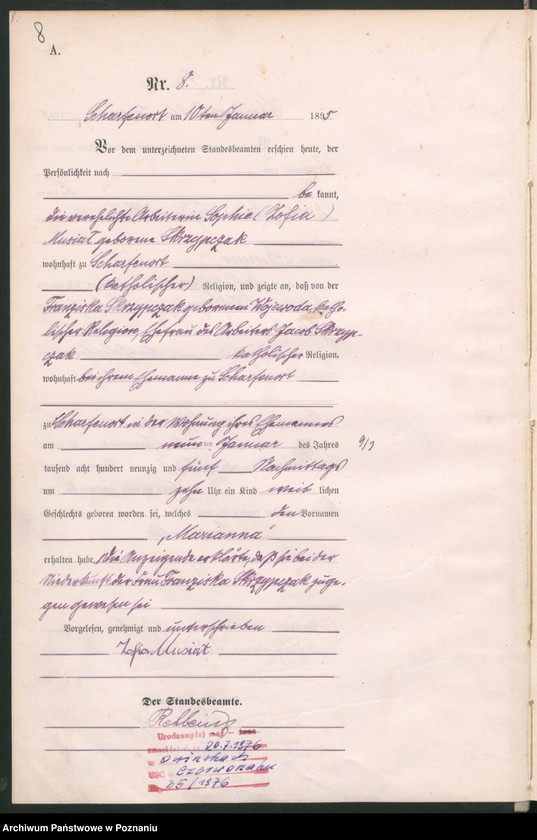 8
A.
Nr. 8.
Scharfenort am 10ten Januar 1895
Vor dem unterzeichneten Standesbeamten erschien heute, der
Persönlichkeit nach
be kannt,
die verehelichte Arbeiterin Sophie (Zofia)
Musiał geborene Skrzypczak
wohnhaft zu Scharfenort
(katholischer) Religion, und zeigte an, daß von der
Franziska Skrzypczak geborenen Wojewoda, katho-
lischer Religion, Ehefrau des Arbeiters Jacob Skrzyp-
czak katholischer Religion,
wohnhaft bei ihrem Ehemanne zu Scharfenort
zu Scharfenort in der Wohnung ihres Ehemannes
am neun ten Januar des Jahres
9/1
tausend acht hundert neunzig und fünf Nachmittags
um zehn Uhr ein Kind weib lichen
Geschlechts geboren worden sei, welches den Vornamen
„Marianna“
erhalten habe. Die Anzeigende erklärte, daß sie bei der
Niederkunft der Frau Franziska Skrzypczak zuge-
gen gewesen sei
Vorgelesen, genehmigt und unterschrieben
Zofia Musiał
Der Standesbeamte.
Rehbein
Urodzony(a)
20.7.1976
w Owińskach
USC Czerwonak
25/1976
Archiwum Państwowe w Poznaniu